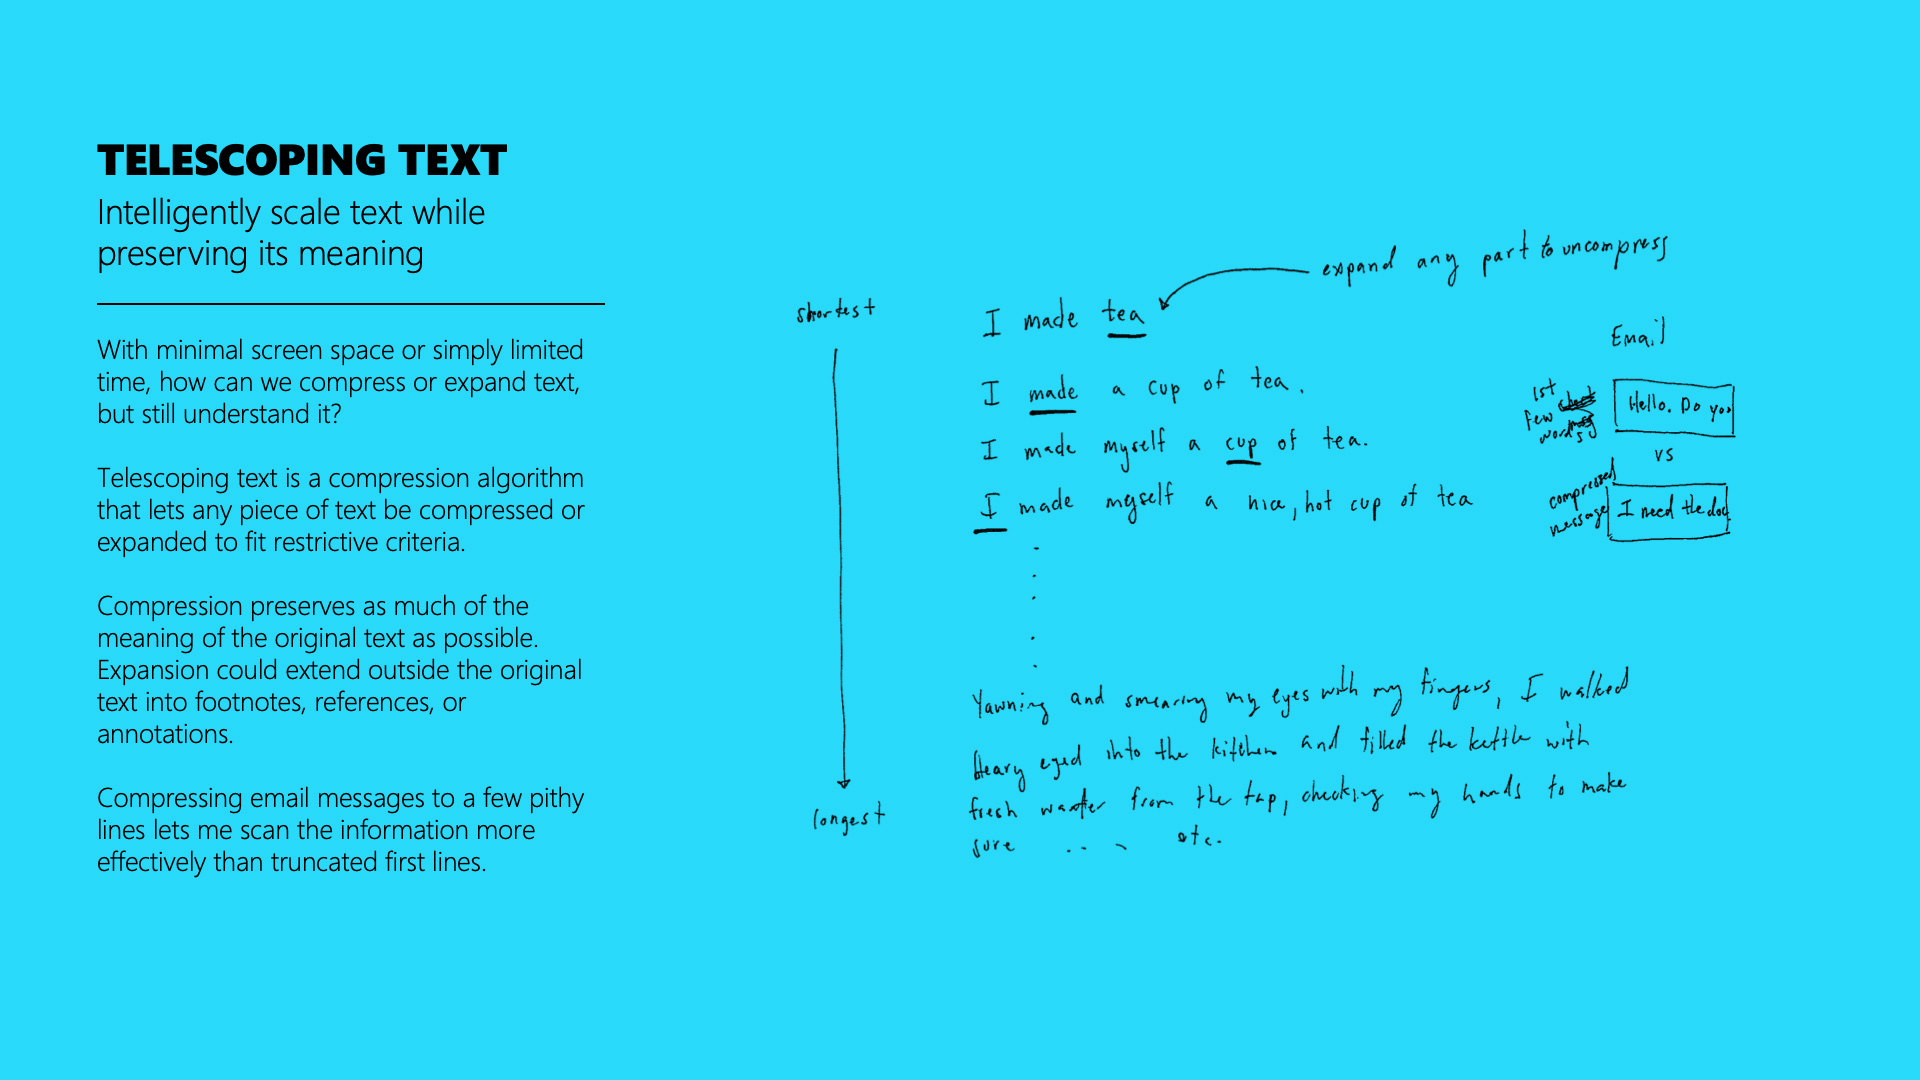 TELESCOPING TEXT
Intelligently scale text while
preserving its meaning
With minimal screen space or simply limited
time, how can we compress or expand text,
but still understand it?
Telescoping text is a compression algorithm
that lets any piece of text be compressed or
expanded to fit restrictive criteria.
Compression preserves as much of the
meaning of the original text as possible.
Expansion could extend outside the original
text into footnotes, references, or
annotations.
Compressing email messages to a few pithy
lines lets me scan the information more
effectively than truncated first lines.
shortest
longest
expand any part to uncompress
I made tea
I made a cup of tea.
I made myself a cup of tea.
I made myself a nice, hot cup of tea
Yawning and smearing my eyes with my fingers, I walked
Heavy eyed into the kitchen and filled the kettle with
fresh water from the tap, checking my hands to make
sure .... etc.
Email
1st
few
words
Hello. Do you
vs
compressed
message
I need the doc